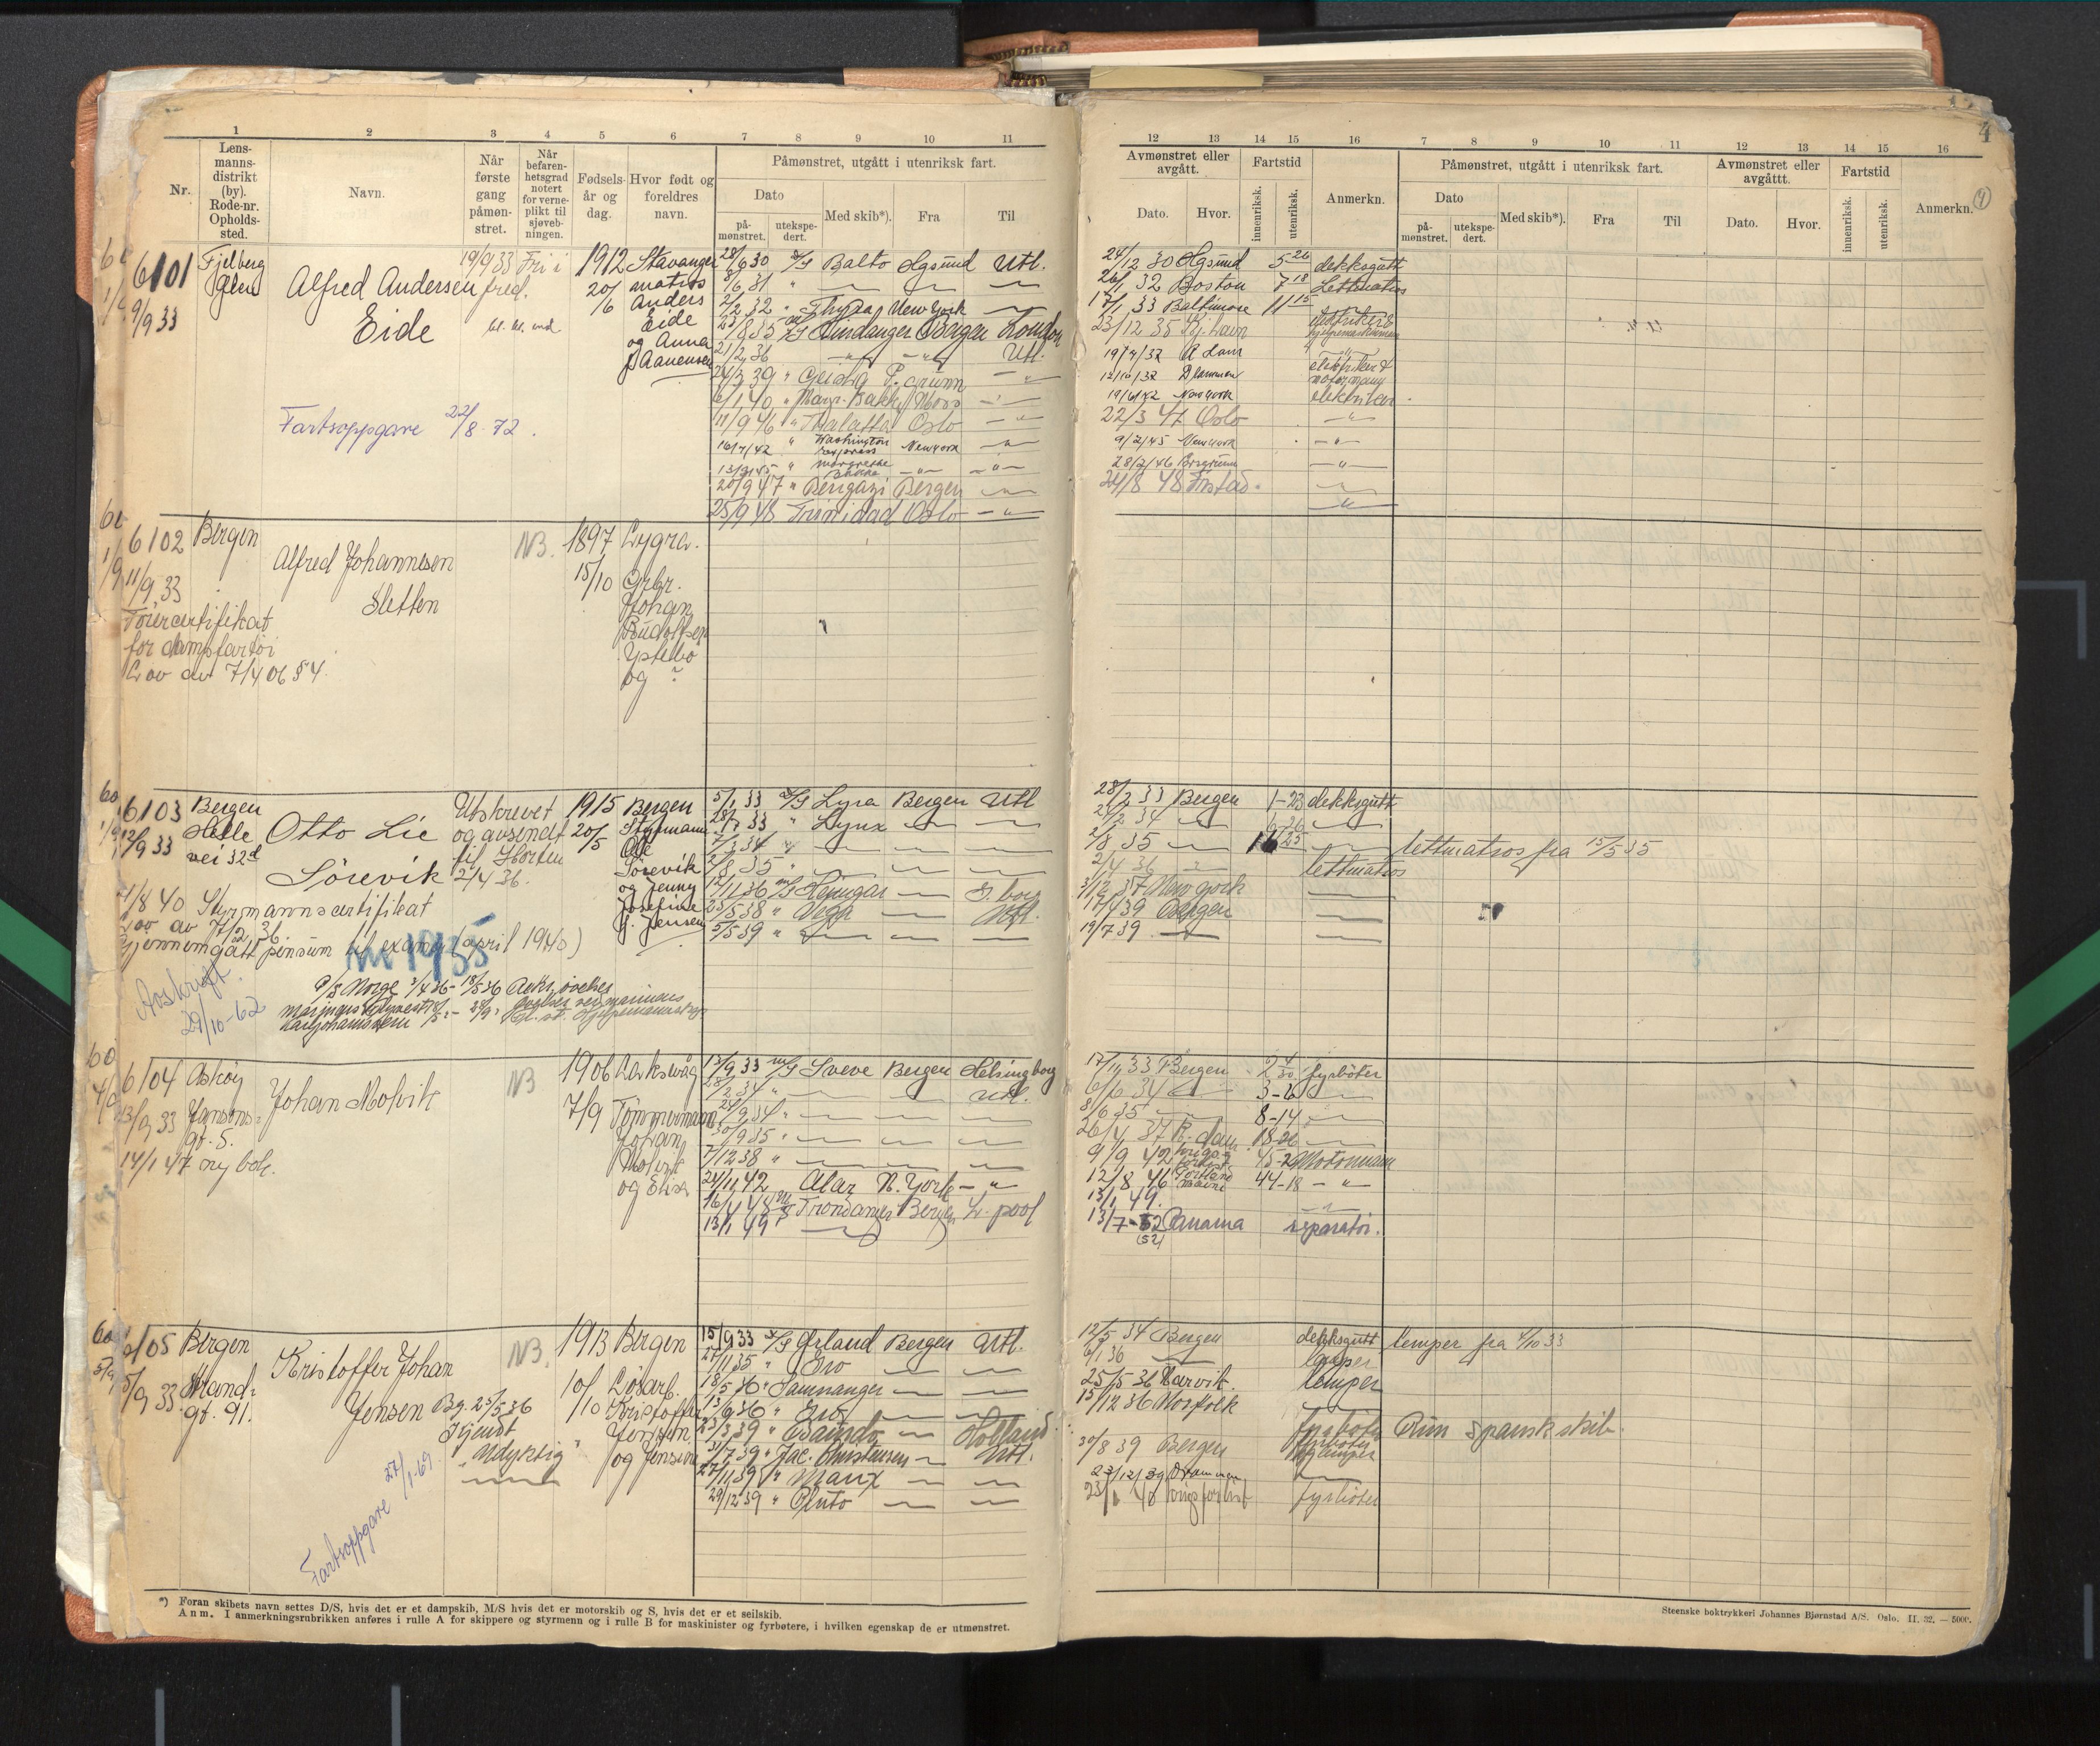 1 2 3 4 5 6 7 8 9 10 11
Nr.
Lens-
manns-
distrikt
(by).
Rode-nr.
Opholds-
sted.
Navn.
Når
første
gang
påmøn-
stret.
Når
befaren-
hetsgrad
notert
for verne-
plikt til
sjøveb-
ningen.
Fødsels-
år og
dag.
Hvor født og
foreldres
navn.
Påmønstret, utgått i utenriksk fart.
Dato
på-
mønstret.
utekspe-
dert.
Med skib*).
Fra
Til
6101 Fjelberg
Ølen
9/9 33
Alfred Andersen
Eide
19/9 33 Fri i
fred.
1912
20/6
Stavanger
matros
Anders
Eide
og Anna
Aanensen
Fartsoppgave 22/8-72.
28/6 30 D/S Balto Hgsund Utl.
8/6 31 " — — —
2/2 32 " Thyra New York —
23/8 35 Hardanger Bergen London
21/2 36 — " — — " — Utl.
24/3 39 " Georg P. grunn — " —
6/1 40 " Marg. Bakke Moss — " —
11/9 46 " Thalatta Oslo — " —
16/7/42 " Washington Express New York — " —
13/3/45 " Margrethe Bakke — " — — " —
20/9 47 " Bengazi Bergen — " —
25/9 48 Trinidad Oslo — " —
6102 Bergen
11/9 33
Alfred Johannesen
Sletten
NB.
1897
15/10
Lygra.
Grbr.
Johan
Rudolfsen
Ystebö
og ?
Förercertifikat
for dampfartöi
Lov av 7/4 06 § 4.
6103 Bergen
12/9 33 Helle
vei 32d
Otto Lie
Sörevik
Utskrevet
og avsendt
til Horten
2/4 36.
1915
20/5
Bergen
Styrmann
Ole
Sörevik
og Jenny
Josefine
J. Jensen
1/8 40 Styrmannscertifikat
Lov av 17/2 36.
Gjennemgått pensum til examen april 1940)
nr 1935
Avskrift.
29/10-62
P/S Norge 3/4 36 - 18/5 36
5/1 33 D/S Lyra Bergen Utl
28/2 33 " Lynx — —
2/3 34 " — — —
2/8 35 " — — —
12/11 36 M/S Heimgar — G. borg
23/5 38 " Vega — Utl.
5/5 39 " — — —
6104 Askøy
13/9 33 Jansons-
gt. 5.
14/1 47 ny bok.
Johan Molvik
NB
1906
7/9
Laksevåg
Tömmermann
Johan
Molvik
og Elise
13/9 33 M/S Sveve Bergen Helsingborg
28/2 34 " — — Utl.
24/9 34 " — — —
30/9 35 " — — —
7/12 38 " — — —
24/11 42 Alar N. York — " —
16/4 48 M/S Trondanger Bergen L. pool
13/1 49 — —
6105 Bergen
15/9 33 Strand-
gt. 91.
Kristoffer Johan
Jensen
NB.
Bg. 23/5 36
Kjendt
"Udyktig"
1913
10/10
Bergen
Lösarb.
Kristoffer
Jensen
og Jensine
Fartsoppgave 27/1-69
15/9 33 D/S Ørland Bergen Utl.
27/11 35 " Bro — —
18/5 36 " Samnanger — —
13/6 36 " Bro — —
23/3 39 " — Holland
31/7 39 " Jac. Christensen — Utl.
27/11 39 " Manx — —
29/12 39 " Pluto — —
*) Foran skibets navn settes D/S, hvis det er et dampskib, M/S hvis det er motorskib og S, hvis det er et seilskib.
Anm. I anmerkningsrubrikken anføres i rulle A for skippere og styrmenn og i rulle B for maskinister og fyrbøtere, i hvilken egenskap de er utmønstret.
4
12 13 14 15 16 7 8 9 10 11 12 13 14 15 16
Avmønstret eller
avgått.
Fartstid
Dato. Hvor.
innenriksk.
utenriksk.
Anmerkn.
Påmønstret, utgått i utenriksk fart.
Dato
på-
mønstret.
utekspe-
dert.
Med skib*).
Fra
Til
Avmønstret eller
avgåttt.
Fartstid
Dato. Hvor.
innenriksk.
utenriksk.
Anmerkn.
24/12 30 Hgsund 5 26 dekksgutt
26/1 32 Boston 7 18 Lettmatros
17/1 33 Baltimore 11 15
23/12 35 Kj. havn
19/4/37 A dam
12/10/37 Drammen elektriker & motormann
19/6/42 New York elektriker
22/3 47 Oslo — " —
9/2/45 New York — " —
28/2/46 Brgrunn — " —
24/8 48 Fristad. — " —
28/2 33 Bergen 1-23 dekksgutt
27/2 34 — 6-26 —
2/8 35 — 16 25 — lettmatros fra 15/5 35
2/4 36 — lettmatros
3/12 37 New York —
17/4 39 Bergen —
19/7 39 — —
17/11 33 Bergen 2 4/30 fyrböter
6/6 34 — 3-6 —
8/6 35 — 8-14 —
26/4 37 R. dam 18 26 —
9/9 42 krigsforlist 45-2 Motormann
12/8 46 Portland Maine 44-18 — " —
13/1 49. — " —
13/7-52 Panama reparatør.
(52)
12/5 34 Bergen dekksgutt lemper fra 4/10 33
6/1 36 — lemper
25/5 36 Narvik. lemper
15/12 36 Norfolk
fyrböter Röm spansk skib.
30/8 39 Bergen
23/12/39 Drammen —
23/1 40 krigsforlist fyrböter
Steenske boktrykkeri Johannes Bjørnstad A/S. Oslo. II. 32. — 5000.